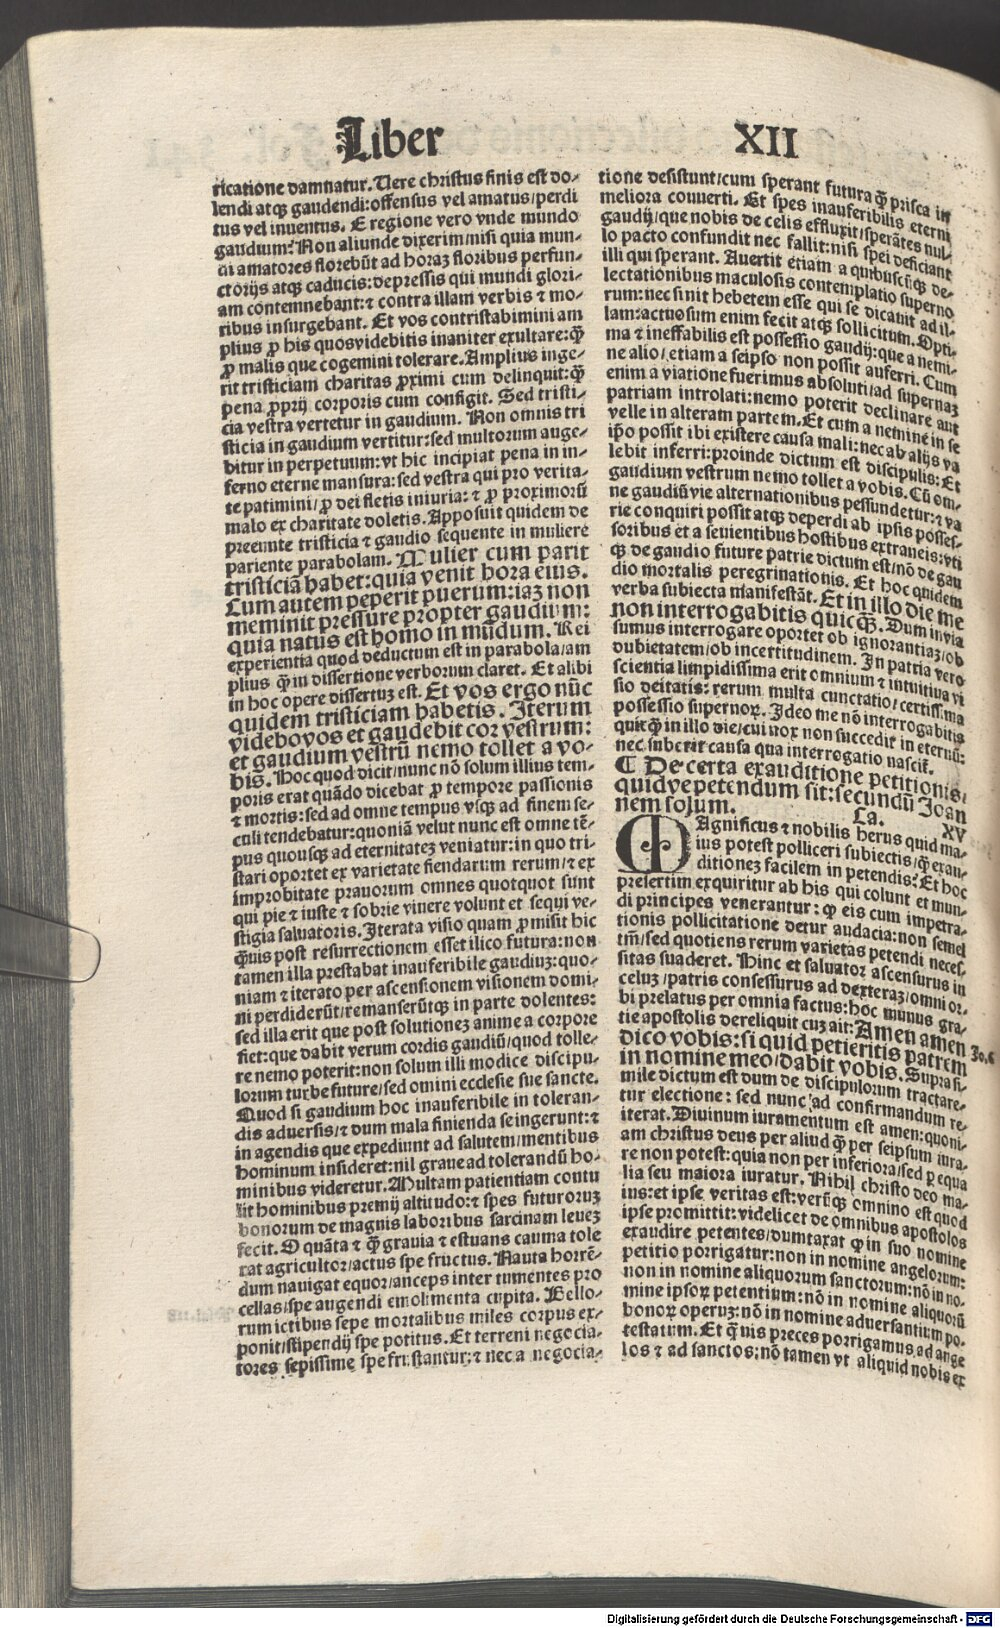 Liber XII
ricatione damnatur. Vere christus finis est do⸗
lendi atq; gaudendi: offensus vel amatus/perdi
tus vel inuentus. E regione vero vnde mundo
gaudium? Non aliunde dixerim/nisi quia mun⸗
di amatores florebūt ad horaꝫ floribus perfun⸗
ctorijs atq; caducis: depressis qui mundi glori⸗
am contemnebant: ⁊ contra illam verbis ⁊ mo⸗
ribus insurgebant. Et vos contristabimini am
plius ꝓ his quos videbitis inaniter exultare: q̄ꝫ
ꝓ malis que cogemini tolerare. Amplius inge⸗
rit tristiciam charitas ꝓximi cum delinquit: q̄ꝫ
pena ꝓprij corporis cum configit. Sed tristi⸗
cia vestra vertetur in gaudium. Non omnis tri
sticia in gaudium vertitur: sed multorum auge⸗
bitur in perpetuum: vt hic incipiat pena in in⸗
ferno eterne mansura: sed vestra qui pro verita⸗
te patimini/ꝓ dei fletis iniuria: ⁊ ꝓ proximorū
malo ex charitate doletis. Apposuit quidem de
preeunte tristicia ⁊ gaudio sequente in muliere
pariente parabolam. Mulier cum parit
tristiciā habet: quia venit hora eius.
Cum autem peperit puerum: iaꝫ non
meminit pressure propter gaudium:
quia natus est homo in mūdum. Rei
experientia quod deductum est in parabola/am
plius q̄ꝫ in dissertione verborum claret. Et alibi
in hoc opere dissertuꝫ est. Et vos ergo nūc
quidem tristiciam habetis. Iterum
videbo vos et gaudebit cor vestrum:
et gaudium vestrū nemo tollet a vo⸗
bis. Hoc quod dicit/nunc nō solum illius tem⸗
poris erat quādo dicebat ꝓ tempore passionis
⁊ mortis: sed ad omne tempus vsq; ad finem se⸗
culi tendebatur: quoniā velut nunc est omne tē⸗
pus quousq; ad eternitateꝫ veniatur: in quo tri⸗
stari oportet ex varietate fiendarum rerum/⁊ ex
improbitate prauorum omnes quotquot sunt
qui pie ⁊ iuste ⁊ sobrie viuere volunt et sequi ve⸗
stigia saluatoris. Iterata visio quam ꝓmisit hic
q̄uis post resurrectionem esset ilico futura: non
tamen illa prestabat inauferibile gaudiuꝫ: quo⸗
niam ⁊ iterato per ascensionem visionem domi⸗
ni perdiderūt/remanserūtq; in parte dolentes:
sed illa erit que post solutioneꝫ anime a corpore
fiet: que dabit verum cordis gaudiū/quod tolle⸗
re nemo poterit: non solum illi modice discipu⸗
lorum turbe future/sed omini ecclesie sue sancte.
Quod si gaudium hoc inauferibile in toleran⸗
dis aduersis/⁊ dum mala finienda se ingerunt: ⁊
in agendis que expediunt ad salutem/mentibus
hominum insideret: nil graue ad tolerandū ho⸗
minibus videretur. Multam patientiam contu
lit hominibus premij altitudo: ⁊ spes futuroruꝫ
bonorum de magnis laboribus sarcinam leueꝫ
fecit. O quāta ⁊ q̄ꝫ grauia ⁊ estuans cauma tole
rat agricultor/actus spe fructus. Nauta horrē⸗
dum nauigat equor/anceps inter tumentes pro
cellas/spe augendi emolimenta cupita. Bello⸗
rum ictibus sepe mortalibus miles corpus ex⸗
ponit/stipendij spe potitus. Et terreni negocia⸗
tores sepissime spe frustantur: ⁊ nec a negocia⸗
tione desistunt/cum sperant futura q̄ꝫ prisca in
meliora conuerti. Et spes inauferibilis eterni
gaudij/que nobis de celis effluxit/sperātes nul⸗
lo pacto confundit nec fallit: nisi spei deficiant
illi qui sperant. Auertit etiam a quibuscūq; de⸗
lectationibus maculosis contemplatio superno
rum: nec sinit hebetem esse qui se dicauit ad il⸗
lam: actuosum enim fecit atq; sollicitum. Opti⸗
ma ⁊ ineffabilis est possessio gaudij: que a nemi⸗
ne alio/etiam a seipso non possit auferri. Cum
enim a viatione fuerimus absoluti/ad supernaꝫ
patriam introlati: nemo poterit declinare aut
velle in alteram partem. Et cum a nemine in se
ip̄o possit ibi existere causa mali: nec ab alijs va
lebit inferri: proinde dictum est discipulis: Et
gaudium vestrum nemo tollet a vobis. Cū om⸗
ne gaudiū vie alternationibus pessundetur: ⁊ va
rie conquiri possit atq; deperdi ab ipsis posses⸗
soribus et a seuientibus hostibus extraneis: vti
q; de gaudio future patrie dictum est/nō de gau
dio mortalis peregrinationis. Et hoc quidem
verba subiecta manifestāt. Et in illo die me
non interrogabitis quicq̄ꝫ. Dum in via
sumus interrogare oportet ob ignorantiaꝫ/ob
dubietatem/ob incertitudinem. In patria vero
scientia limpidissima erit omnium ⁊ intuitiua vi
sio deitatis: rerum multa cunctatio/certissima
possessio supernoꝝ. Ideo me nō interrogabitis
quicq̄ꝫ in illo die/cui nox non succedit in eternū:
nec suberit causa qua interrogatio nascit᷑.
¶ De certa exauditione petitionis/
quidve petendum sit: secundū Joan
nem sojum. Ca. XV
MAgnificus ⁊ nobilis herus quid ma⸗
ius potest polliceri subiectis/q̄ꝫ exau⸗
ditioneꝫ facilem in petendis? Et hoc
presertim exquiritur ab his qui colunt et mun⸗
di principes venerantur: ꝙ eis cum impetra⸗
tionis pollicitatione detur audacia: non semel
tm̄/sed quotiens rerum varietas petendi neces⸗
sitas suaderet. Hinc et saluator ascensurus in
celuꝫ/patris consessurus ad dexteraꝫ/omni or⸗
bi prelatus per omnia factus: hoc munus gra⸗
tie apostolis dereliquit cuꝫ ait: Amen amen
dico vobis: si quid petieritis patrem Jo.6
in nomine meo/dabit vobis. Supra si⸗
mile dictum est dum de discipulorum tractare⸗
tur electione: sed nunc ad confirmandum re⸗
iterat. Diuinum iuramentum est amen: quoni⸗
am christus deus per aliud q̄ꝫ per seipsum iura⸗
re non potest: quia non per inferiora/sed ꝑ equa
lia seu maiora iuratur. Nihil christo deo ma⸗
ius: et ipse veritas est: verūq; omnino est quod
ipse promittit: videlicet de omnibus apostolos
exaudire petentes/dumtaxat ꝙ in suo nomine
petitio porrigatur: non in nomine angelorum:
non in nomine aliquorum sanctorum: nō in no⸗
mine ipsoꝝ petentium: nō in nomine aliquorū
bonoꝝ operuꝫ: nō in nomine aduersantium po⸗
testatum. Et q̄uis preces porrigamus ad ange
los ⁊ ad sanctos: nō tamen vt aliquid nobis ex
Digitalisierung gefördert durch die Deutsche Forschungsgemeinschaft - DFG